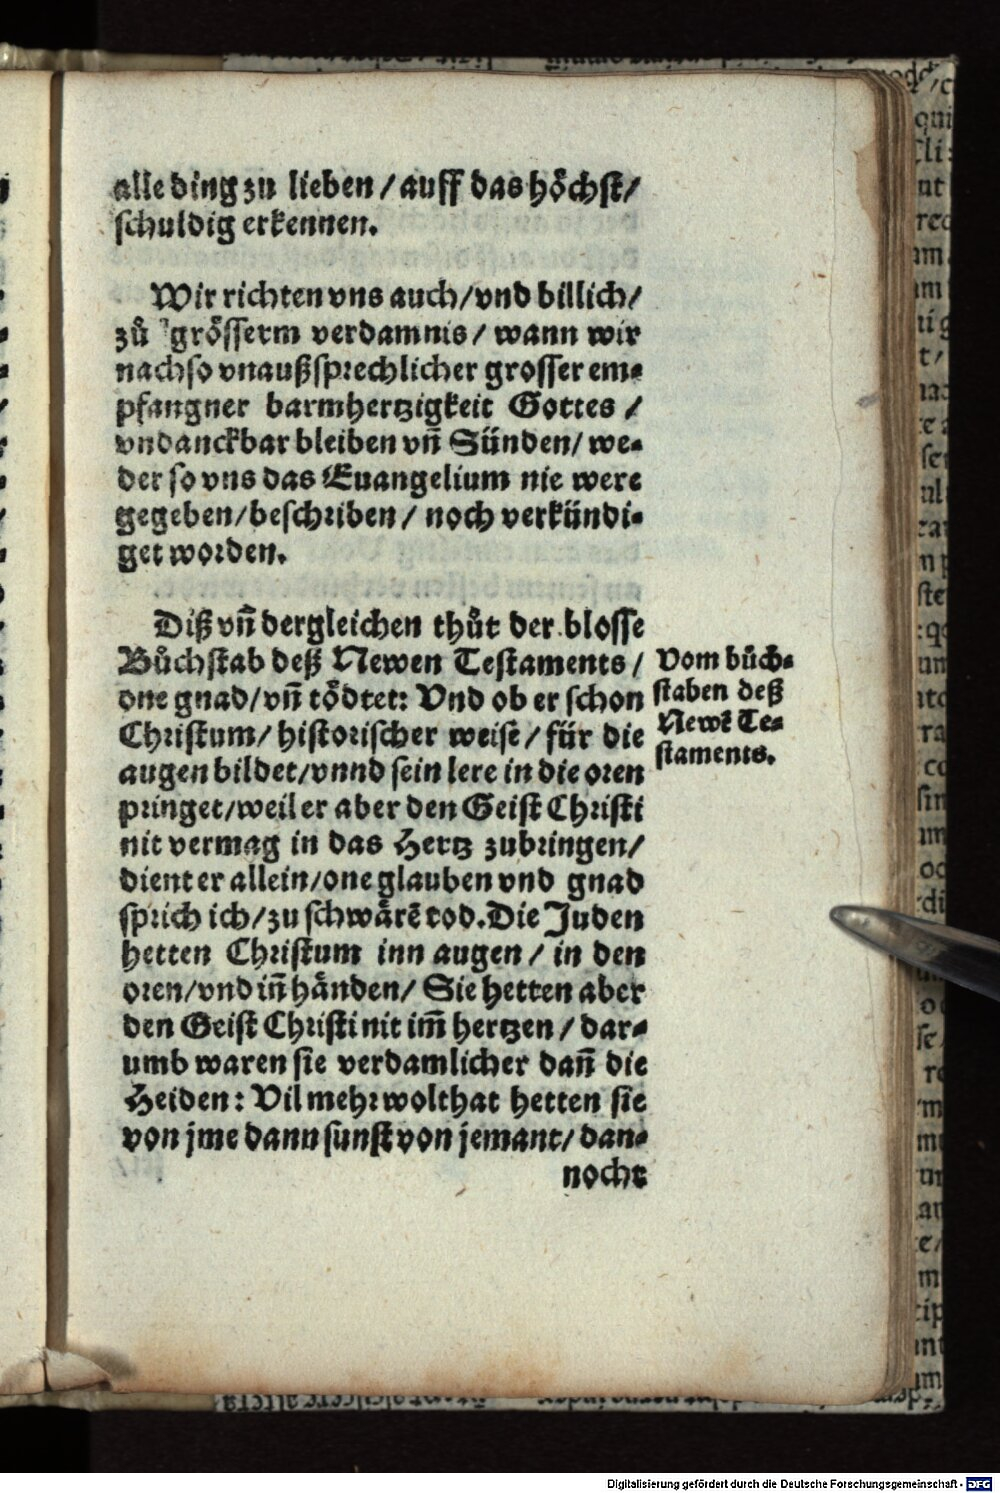 alle ding zu lieben / auff das höchst /
schuldig erkennen.
Wir richten vns auch / vnd billich /
zů grösserm verdamnis / wann wir
nach so vnaußsprechlicher grosser em⸗
pfangner barmhertzigkeit Gottes /
vndanckbar bleiben vñ Sünden / we⸗
der so vns das Euangelium nie were
gegeben / beschriben / noch verkündi⸗
get worden.
Diß vñ dergleichen thůt der blosse
Bůchstab deß Newen Testaments /
one gnad / vñ tödtet: Vnd ob er schon
Christum / historischer weise / für die
augen bildet / vnnd sein lere in die oren
pringet / weil er aber den Geist Christi
nit vermag in das Hertz zubringen /
dient er allein / one glauben vnd gnad
sprich ich / zu schwärẽ tod. Die Juden
hetten Christum inn augen / in den
oren / vnd iñ händen / Sie hetten aber
den Geist Christi nit im̃ hertzen / dar⸗
umb waren sie verdamlicher dañ die
Heiden: Vil mehr wolthat hetten sie
von jme dann sunst von jemant / dan⸗
nocht
Vom bůch⸗
staben deß
Newẽ Te⸗
staments.
Digitalisierung gefördert durch die Deutsche Forschungsgemeinschaft - DFG